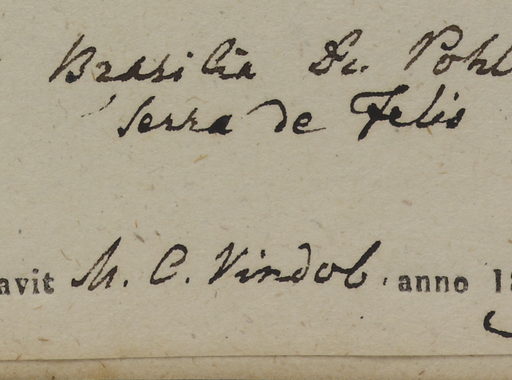 Brasilia Dr. Pohl
Serra de Felis
avit M. C. Vindob. anno 18